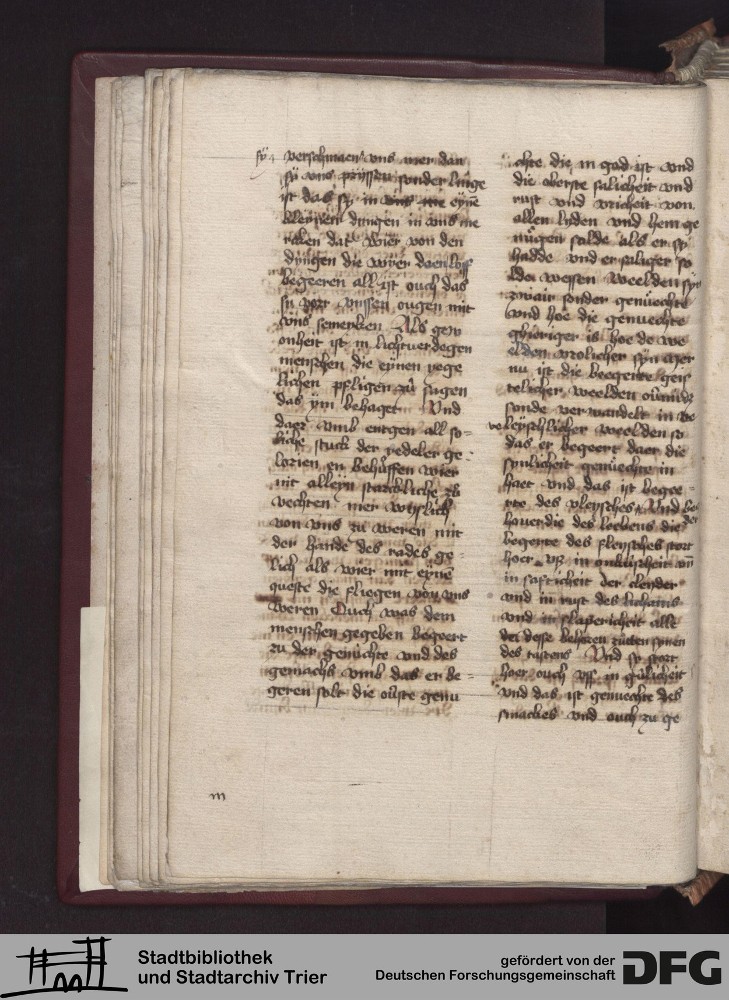 sy verschmaen vns mer dan
sy vns prysen sonder lange
ist das sy in eyne
kleynen dyngen in vns me
raken dat wier von den
dyngen die wyer daen loff
begeeren all ist ouch das
sy vor vnssen ougen mit
vns semerken Als gew
onheit ist in lichtuerdegen
menschen die eynen yege
lichen pfligen zu sagen
das ym behaget Vnd
daer vmb entgen all so-
liche stuck der ydeler ge-
lorien en behuffen wier
nit alleyn starckliche zu
vechten mer wyslich
von vns zu weren mit
der hande des rades ge-
lich als wier mit eyne
queste die fliegen von vns
weren Ouch was dem
menschen gegeben begeert
zu der genuchte vnd des
gemachs vmb das er be-
geren solt die ouste genu
m
chte die in god ist vnd
die oberste salicheit vnd
rust vnd vricheit von
allen lyden vnd hem ge
nugen solde als er sy
hadde vnd er saliger so
lde wessen weelden syn
zwair sonder genuechte
vnd hoe die genuechte
ghieriger is hoe de we
elden vrolicher syn mer
nu ist die beegerte geis
telicher weelden ouermidz
sonde verwandelt in we
vleyschlicher weelden so
das er begeert daer die
synlicheit genuechte in
haet vnd das ist begee-
rte des vleysches Vnd be
hauer die des leebens die der
begerte des fleysches stort
hoer vsz in onkuscheit vn
in safticheit der cleyder
vnd in rust des lichams
vnd in slapericheit allt
des tastens Vnd sy stort
hoer ouch vsz in gulicheit
vnd das ist genuechte des
smackes vnd ouch zu ge
Stadtbibliothek
und Stadtarchiv Trier
gefördert von der
Deutschen Forschungsgemeinschaft
DFG